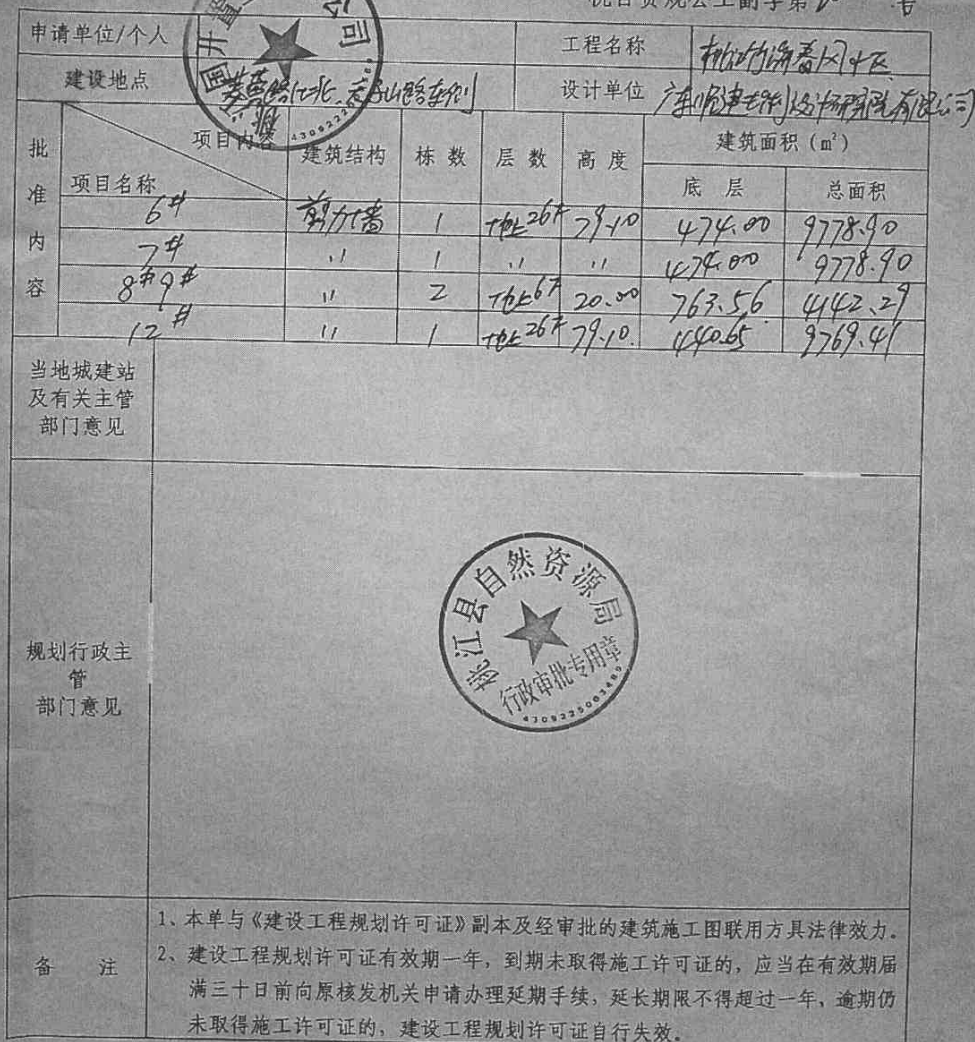 桃自资规公工副字第
号
申请单位/个人
工程名称 桃江竹海春风小区
建设地点 路以北、路东侧
设计单位 广东 建筑设计研究院有限公司
批准内容
项目内容 建筑结构 栋数 层数 高度 建筑面积(㎡)
项目名称 底层 总面积
6# 剪力墙 1 地上26F 79.10 474.00 9778.90
7# 〃 1 〃 〃 474.00 9778.90
8#9# 〃 2 地上6F 20.00 763.56 4142.29
12# 〃 1 地上26F 79.10 440.65 9769.41
当地城建站
及有关主管
部门意见
规划行政主
管
部门意见
桃江县自然资源局
行政审批专用章
4309225003489
备 注
1、本单与《建设工程规划许可证》副本及经审批的建筑施工图联用方具法律效力。
2、建设工程规划许可证有效期一年，到期未取得施工许可证的，应当在有效期届
满三十日前向原核发机关申请办理延期手续，延长期限不得超过一年，逾期仍
未取得施工许可证的，建设工程规划许可证自行失效。